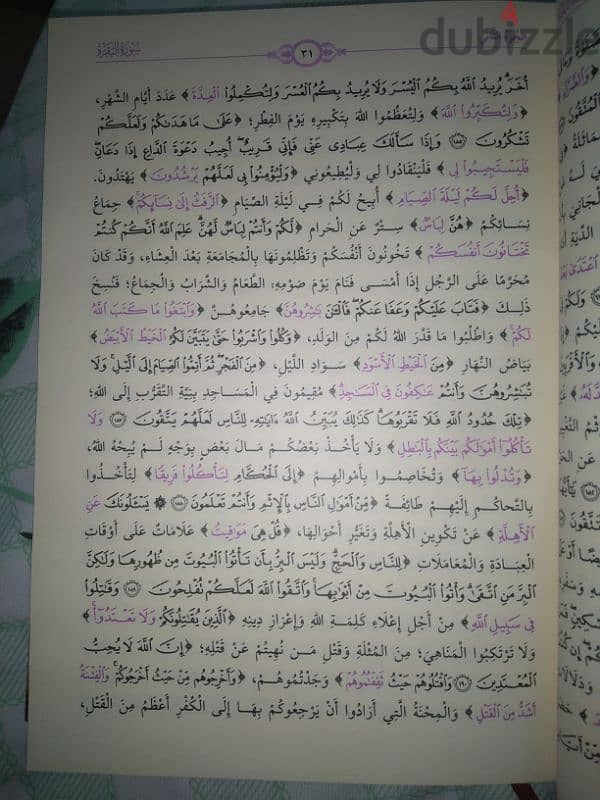 dubizzle
٣١
سورة البقرة
أُخَرَ يُرِيدُ اللَّهُ بِكُمُ الْيُسْرَ وَلَا يُرِيدُ بِكُمُ الْعُسْرَ وَلِتُكْمِلُوا الْعِدَّةَ﴾ عَدَدَ أَيَّامِ الشَّهْرِ،
﴿وَلِتُكَبِّرُوا اللَّهَ﴾ وَلِتُعَظِّمُوا اللهَ بِتَكْبِيرِهِ يَوْمَ الفِطْرِ؛ ﴿عَلَىٰ مَا هَدَىٰكُمْ وَلَعَلَّكُمْ
تَشْكُرُونَ ١٨٥ وَإِذَا سَأَلَكَ عِبَادِي عَنِّي فَإِنِّي قَرِيبٌ أُجِيبُ دَعْوَةَ الدَّاعِ إِذَا دَعَانِ
فَلْيَسْتَجِيبُوا لِي﴾ فَلْيَنْقَادُوا لِي وَلْيُطِيعُونِي ﴿وَلْيُؤْمِنُوا بِي لَعَلَّهُمْ يَرْشُدُونَ﴾ يَهْتَدُونَ.
﴿أُحِلَّ لَكُمْ لَيْلَةَ الصِّيَامِ﴾ أُبِيحَ لَكُمْ فِي لَيْلَةِ الصِّيَامِ ﴿الرَّفَثُ إِلَىٰ نِسَائِكُمْ﴾ جِمَاعُ
نِسَائِكُمْ ﴿هُنَّ لِبَاسٌ﴾ سِتْرٌ عَنِ الْحَرامِ ﴿لَكُمْ وَأَنْتُمْ لِبَاسٌ لَهُنَّ عَلِمَ اللَّهُ أَنَّكُمْ كُنْتُمْ
تَخْتَانُونَ أَنْفُسَكُمْ﴾ تَخُونُونَ أَنْفُسَكُمْ وَتَظْلِمُونَهَا بِالْمُجَامَعَةِ بَعْدَ الْعِشَاءِ، وَقَدْ كَانَ
مُحَرَّمًا عَلَى الرَّجُلِ إِذَا أَمْسَى فَنَامَ يَوْمَ صَوْمِهِ: الطَّعَامُ وَالشَّرَابُ وَالْجِمَاعُ؛ فَنُسِخَ
ذَلِكَ ﴿فَتَابَ عَلَيْكُمْ وَعَفَا عَنْكُمْ فَالْآنَ بَاشِرُوهُنَّ﴾ جَامِعُوهُنَّ ﴿وَابْتَغُوا مَا كَتَبَ اللَّهُ
لَكُمْ﴾ وَاطْلُبُوا مَا قَدَّرَ اللهُ لَكُمْ مِنَ الوَلَدِ، ﴿وَكُلُوا وَاشْرَبُوا حَتَّىٰ يَتَبَيَّنَ لَكُمُ الْخَيْطُ الْأَبْيَضُ﴾
بَيَاضُ النَّهَارِ ﴿مِنَ الْخَيْطِ الْأَسْوَدِ﴾ سَوَادِ اللَّيْلِ، ﴿مِنَ الْفَجْرِ ثُمَّ أَتِمُّوا الصِّيَامَ إِلَى اللَّيْلِ وَلَا
تُبَاشِرُوهُنَّ وَأَنْتُمْ عَاكِفُونَ فِي الْمَسَاجِدِ﴾ مُقِيمُونَ فِي المَسَاجِدِ بِنِيَّةِ التَّقَرُّبِ إِلَى اللهِ؛
﴿تِلْكَ حُدُودُ اللَّهِ فَلَا تَقْرَبُوهَا كَذَٰلِكَ يُبَيِّنُ اللَّهُ آيَاتِهِ لِلنَّاسِ لَعَلَّهُمْ يَتَّقُونَ ١٨٧ وَلَا
تَأْكُلُوا أَمْوَالَكُمْ بَيْنَكُمْ بِالْبَاطِلِ﴾ وَلَا يَأْخُذْ بَعْضُكُمْ مَالَ بَعْضٍ بِوَجْهٍ لَمْ يُبِحْهُ اللهُ،
﴿وَتُدْلُوا بِهَا﴾ وَتُخَاصِمُوا بِأَمْوَالِهِمْ ﴿إِلَى الْحُكَّامِ لِتَأْكُلُوا فَرِيقًا﴾ لِتَأْخُذُوا
بِالتَّحَاكُمِ إِلَيْهِمْ طَائِفَةً ﴿مِنْ أَمْوَالِ النَّاسِ بِالْإِثْمِ وَأَنْتُمْ تَعْلَمُونَ ١٨٨ ۞ يَسْأَلُونَكَ عَنِ
الْأَهِلَّةِ﴾ عَنْ تَكْوِينِ الأَهِلَّةِ وَتَغَيُّرِ أَحْوَالِهَا، ﴿قُلْ هِيَ مَوَاقِيتُ﴾ عَلَامَاتٌ عَلَى أَوْقَاتِ
العِبَادَةِ وَالْمُعَامَلَاتِ ﴿لِلنَّاسِ وَالْحَجِّ وَلَيْسَ الْبِرُّ بِأَنْ تَأْتُوا الْبُيُوتَ مِنْ ظُهُورِهَا وَلَٰكِنَّ
الْبِرَّ مَنِ اتَّقَىٰ وَأْتُوا الْبُيُوتَ مِنْ أَبْوَابِهَا وَاتَّقُوا اللَّهَ لَعَلَّكُمْ تُفْلِحُونَ ١٨٩ وَقَاتِلُوا
فِي سَبِيلِ اللَّهِ﴾ مِنْ أَجْلِ إِعْلَاءِ كَلِمَةِ اللهِ وَإِعْزَازِ دِينِهِ ﴿الَّذِينَ يُقَاتِلُونَكُمْ وَلَا تَعْتَدُوا﴾
وَلَا تَرْتَكِبُوا المَنَاهِيَ؛ مِنَ المُثْلَةِ وَقَتْلِ مَنْ نُهِيتُمْ عَنْ قَتْلِهِ؛ ﴿إِنَّ اللَّهَ لَا يُحِبُّ
الْمُعْتَدِينَ ١٩٠ وَاقْتُلُوهُمْ حَيْثُ ثَقِفْتُمُوهُمْ﴾ وَجَدْتُمُوهُمْ، ﴿وَأَخْرِجُوهُمْ مِنْ حَيْثُ أَخْرَجُوكُمْ وَالْفِتْنَةُ
أَشَدُّ مِنَ الْقَتْلِ﴾ وَالْمِحْنَةُ الَّتِي أَرَادُوا أَنْ يَرْجِعُوكُمْ بِهَا إِلَى الْكُفْرِ أَعْظَمُ مِنَ الْقَتْلِ،